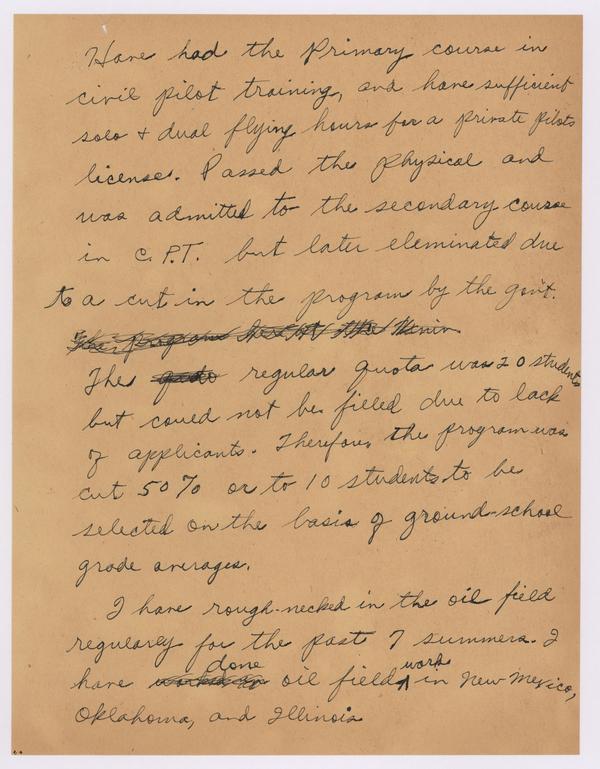 Have had the Primary course in
civil pilot training, and have sufficient
solo + dual flying hours for a private pilots
license. Passed the physical and
was admitted to the secondary course
in C.P.T. but later eleminated due
to a cut in the program by the govt.
The regular quota was 20 students
but could not be filled due to lack
of applicants. Therefore, the program was
cut 50% or to 10 students to be
selected on the basis of ground-school
grade averages.
I have rough-necked in the oil field
regularly for the past 7 summers. I
have done oil field work in New Mexico,
Oklahoma, and Illinois